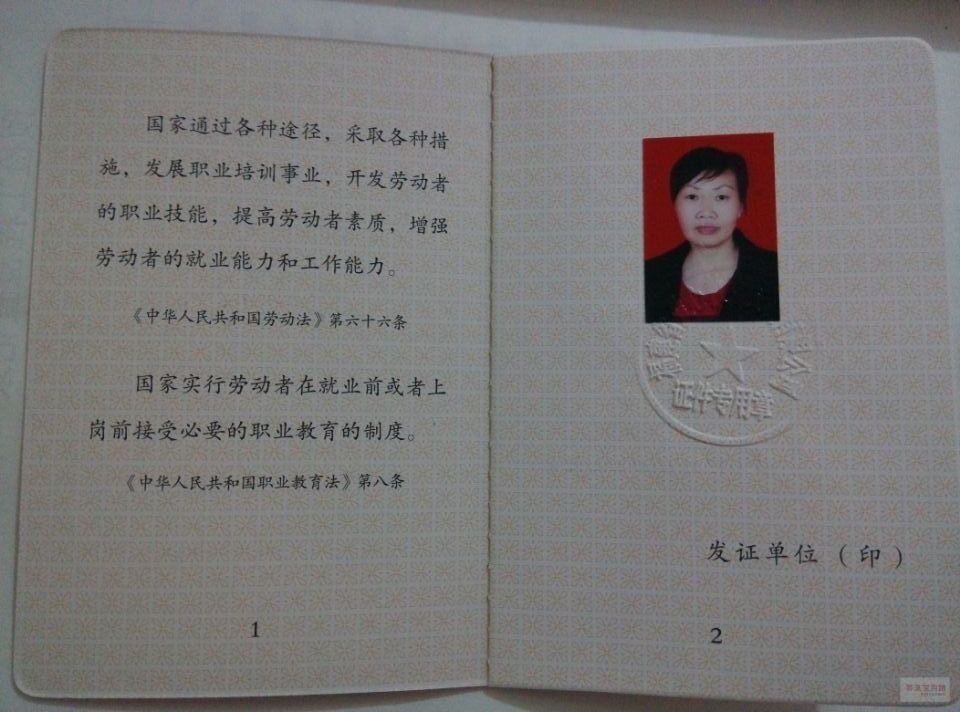 国家通过各种途径，采取各种措
施，发展职业培训事业，开发劳动者
的职业技能，提高劳动者素质，增强
劳动者的就业能力和工作能力。
《中华人民共和国劳动法》第六十六条
国家实行劳动者在就业前或者上
岗前接受必要的职业教育的制度。
《中华人民共和国职业教育法》第八条
1
证件专用章
发证单位（印）
2